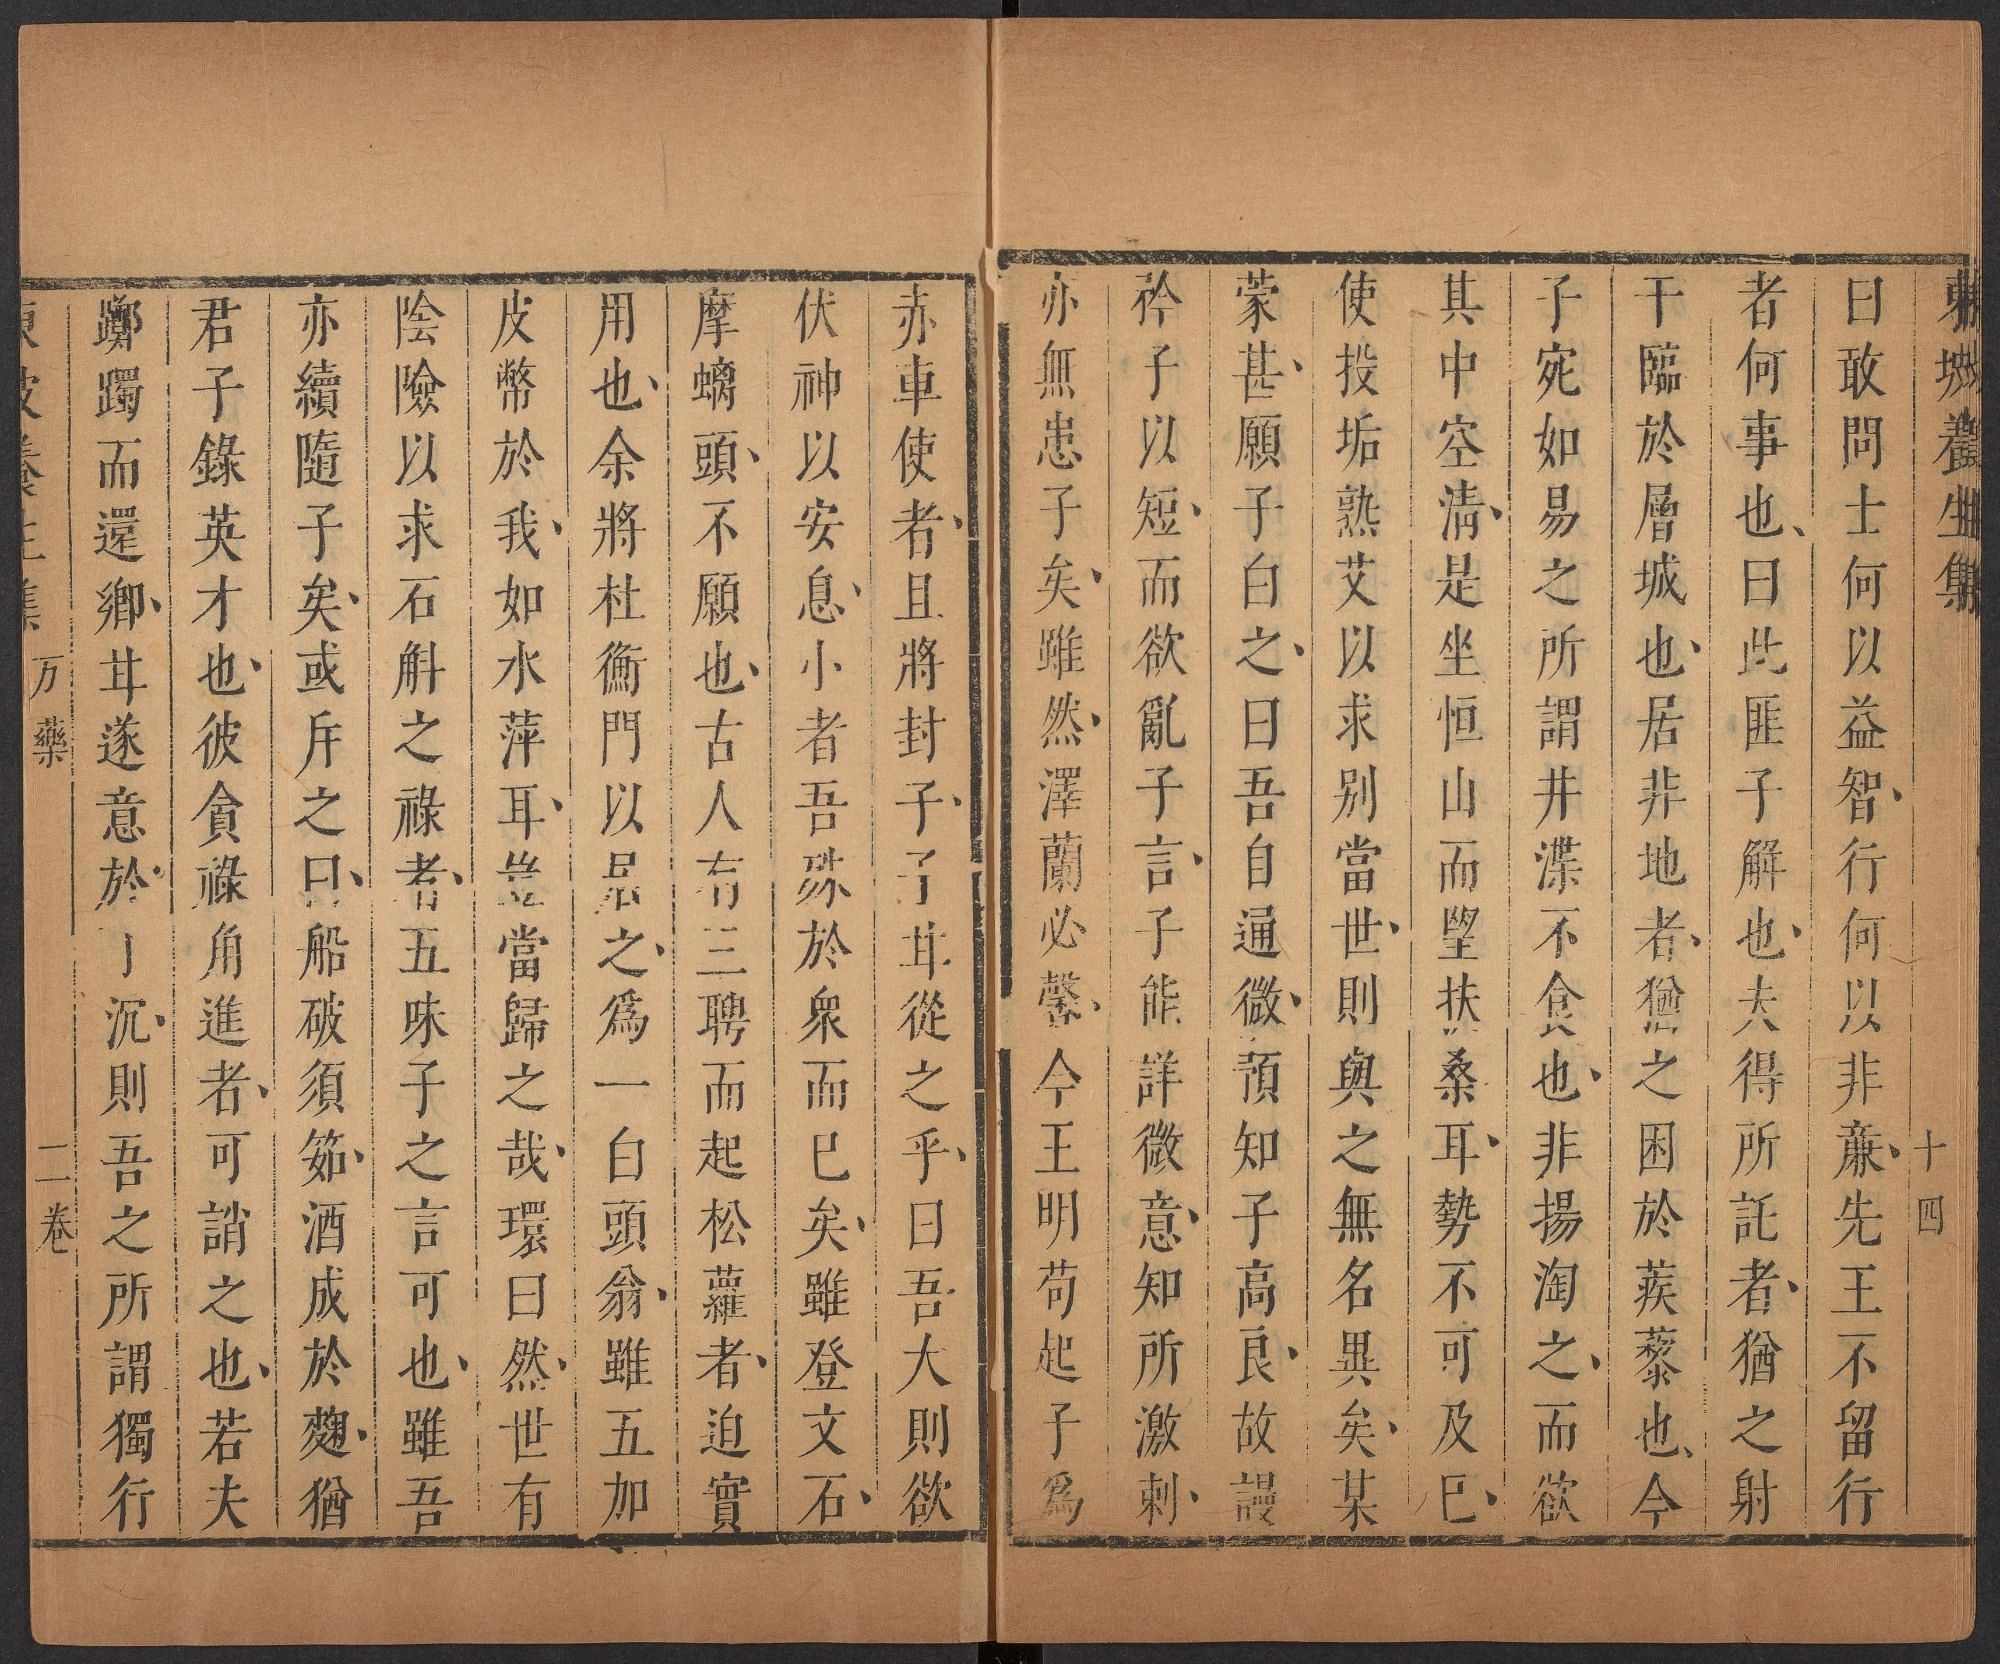 東坡養生集
十四
曰敢問士何以益智、行何以非亷、先王不留行
者何事也、曰此匪子解也、夫得所託者、猶之射
干臨於層城也、居非地者、猶之困於蒺藜也、今
子宛如易之所謂井渫不食也、非揚淘之、而欲
其中空清、是坐恒山而望扶桑耳、勢不可及巳、
使投垢熟艾以求别當世、則與之無名異矣、某
蒙甚、願子白之、曰吾自通微、預知子高良、故謾
矜子以短、而欲亂子言、子能詳微意、知所激刺、
亦無患子矣、雖然、澤蘭必馨、今王明苟起子爲
赤車使者、且將封子、子甘從之乎、曰吾大則欲
伏神以安息、小者吾殊於衆而巳矣、雖登文石、
摩螭頭、不願也、古人有三聘而起松蘿者、迫實
用也、余將杜衡門以居之、爲一白頭翁、雖五加
皮幣於我、如水萍耳、豈當歸之哉、環曰然、世有
陰險以求石斛之祿者、五味子之言可也、雖吾
亦續隨子矣、或斥之曰、船破須筎、酒成於麴、猶
君子錄英才也、彼貪祿角進者、可誚之也、若夫
躑躅而還鄉、甘遂意於丁沉、則吾之所謂獨行
東坡養生集
方藥
二卷